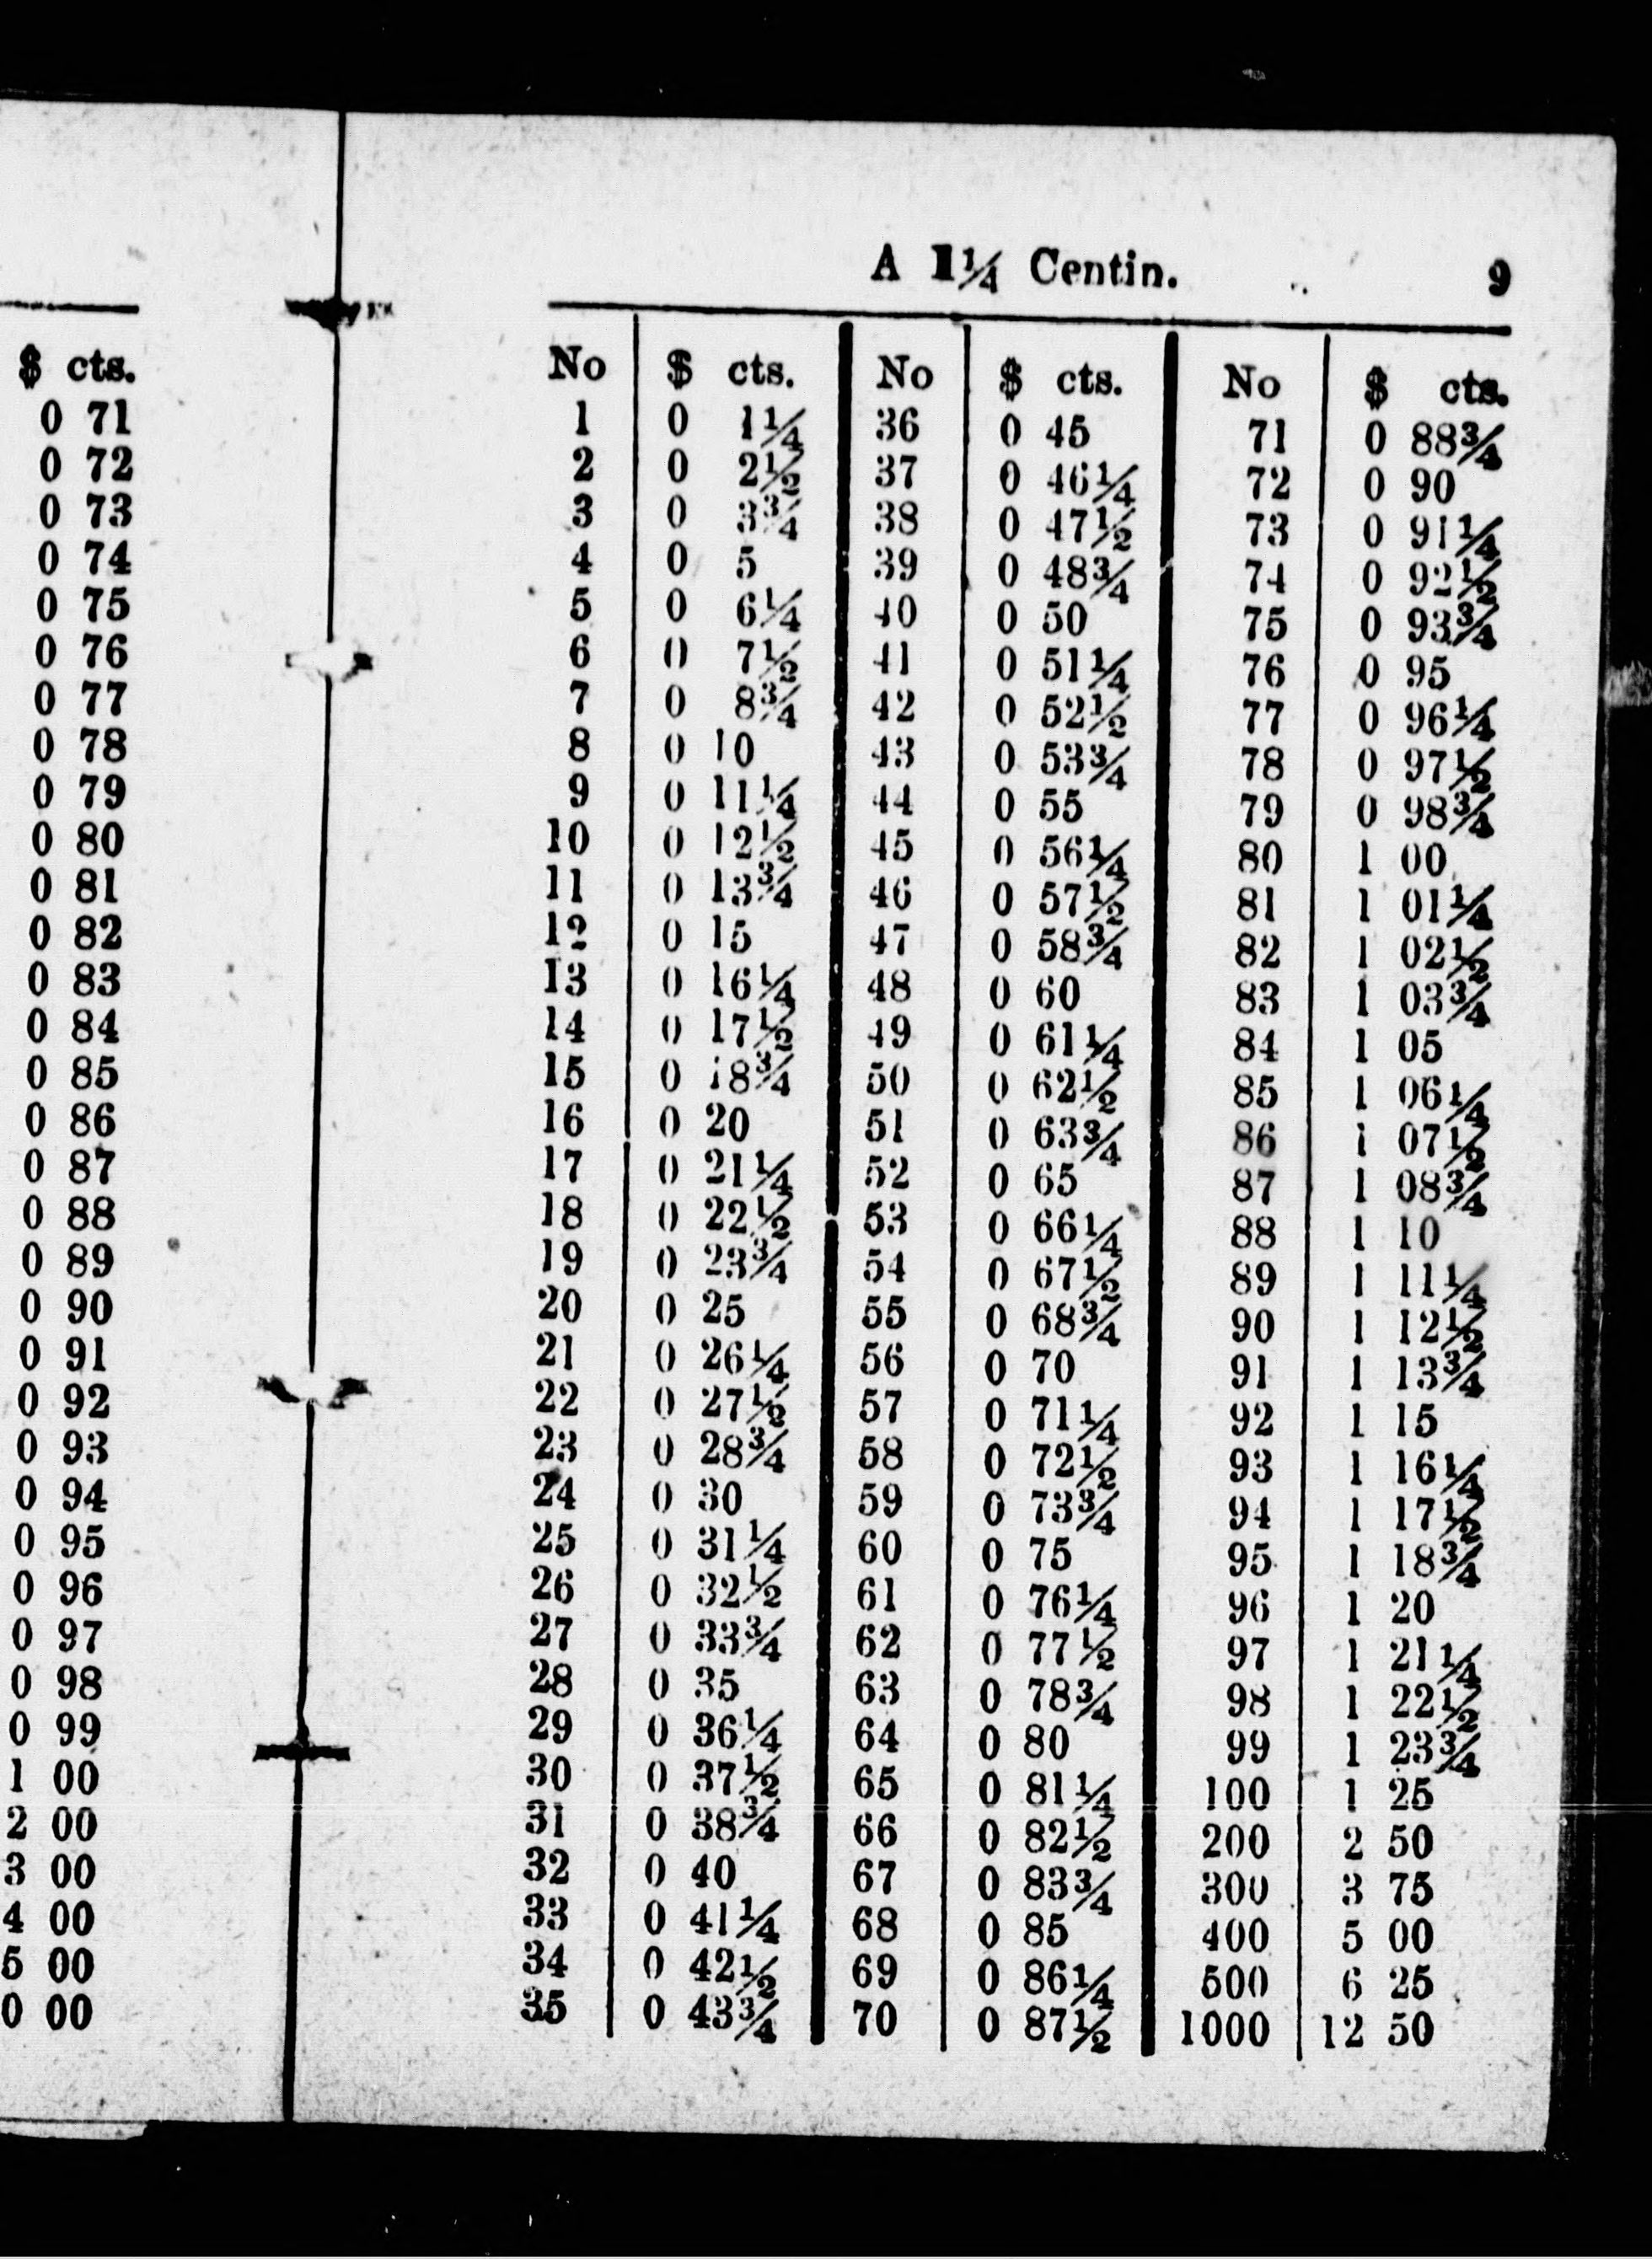 $ cts.
0 71
0 72
0 73
0 74
0 75
0 76
0 77
0 78
0 79
0 80
0 81
0 82
0 83
0 84
0 85
0 86
0 87
0 88
0 89
0 90
0 91
0 92
0 93
0 94
0 95
0 96
0 97
0 98
0 99
1 00
2 00
3 00
4 00
5 00
0 00
A 1¼ Centin. 9
No $ cts. No $ cts. No $ cts.
1 0 1¼ 36 0 45 71 0 88¾
2 0 2½ 37 0 46¼ 72 0 90
3 0 3¾ 38 0 47½ 73 0 91¼
4 0 5 39 0 48¾ 74 0 92½
5 0 6¼ 40 0 50 75 0 93¾
6 0 7½ 41 0 51¼ 76 0 95
7 0 8¾ 42 0 52½ 77 0 96¼
8 0 10 43 0 53¾ 78 0 97½
9 0 11¼ 44 0 55 79 0 98¾
10 0 12½ 45 0 56¼ 80 1 00
11 0 13¾ 46 0 57½ 81 1 01¼
12 0 15 47 0 58¾ 82 1 02½
13 0 16¼ 48 0 60 83 1 03¾
14 0 17½ 49 0 61¼ 84 1 05
15 0 18¾ 50 0 62½ 85 1 06¼
16 0 20 51 0 63¾ 86 1 07½
17 0 21¼ 52 0 65 87 1 08¾
18 0 22½ 53 0 66¼ 88 1 10
19 0 23¾ 54 0 67½ 89 1 11¼
20 0 25 55 0 68¾ 90 1 12½
21 0 26¼ 56 0 70 91 1 13¾
22 0 27½ 57 0 71¼ 92 1 15
23 0 28¾ 58 0 72½ 93 1 16¼
24 0 30 59 0 73¾ 94 1 17½
25 0 31¼ 60 0 75 95 1 18¾
26 0 32½ 61 0 76¼ 96 1 20
27 0 33¾ 62 0 77½ 97 1 21¼
28 0 35 63 0 78¾ 98 1 22½
29 0 36¼ 64 0 80 99 1 23¾
30 0 37½ 65 0 81¼ 100 1 25
31 0 38¾ 66 0 82½ 200 2 50
32 0 40 67 0 83¾ 300 3 75
33 0 41¼ 68 0 85 400 5 00
34 0 42½ 69 0 86¼ 500 6 25
35 0 43¾ 70 0 87½ 1000 12 50